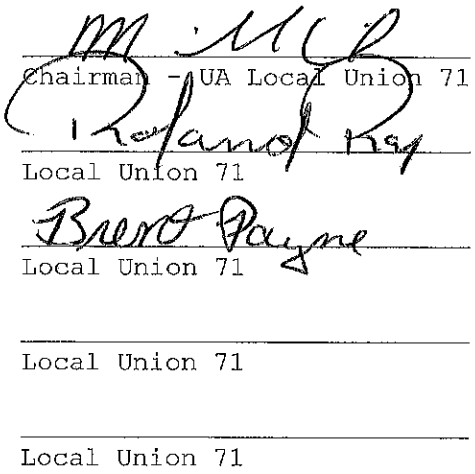 Chairman - UA Local Union 71
Roland
Local Union 71
Brent Payne
Local Union 71
Local Union 71
Local Union 71